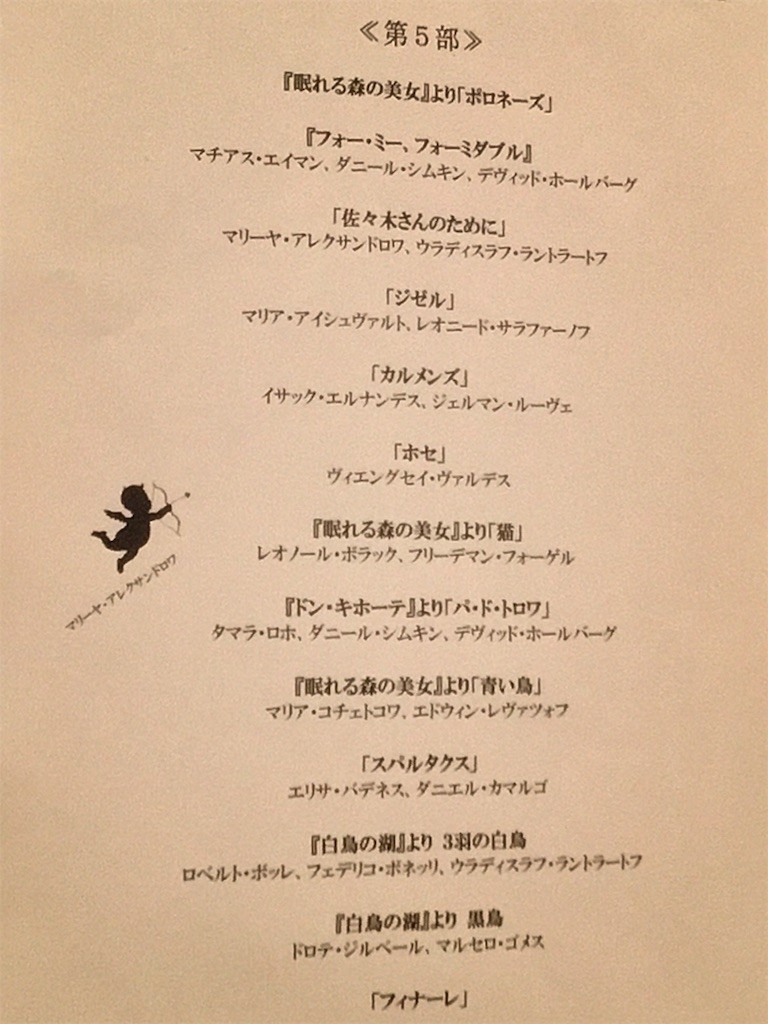 ≪第５部≫
『眠れる森の美女』より「ポロネーズ」
『フォー・ミー、フォーミダブル』
マチアス・エイマン、ダニール・シムキン、デヴィッド・ホールバーグ
「佐々木さんのために」
マリーヤ・アレクサンドロワ、ウラディスラフ・ラントラートフ
「ジゼル」
マリア・アイシュヴァルト、レオニード・サラファーノフ
「カルメンズ」
イサック・エルナンデス、ジェルマン・ルーヴェ
「ホセ」
ヴィエングセイ・ヴァルデス
『眠れる森の美女』より「猫」
レオノール・ボラック、フリーデマン・フォーゲル
『ドン・キホーテ』より「パ・ド・トロワ」
タマラ・ロホ、ダニール・シムキン、デヴィッド・ホールバーグ
『眠れる森の美女』より「青い鳥」
マリア・コチェトコワ、エドウィン・レヴァツォフ
「スパルタクス」
エリサ・バデネス、ダニエル・カマルゴ
『白鳥の湖』より 3羽の白鳥
ロベルト・ボッレ、フェデリコ・ボネッリ、ウラディスラフ・ラントラートフ
『白鳥の湖』より 黒鳥
ドロテ・ジルベール、マルセロ・ゴメス
「フィナーレ」
マリーヤ・アレクサンドロワ